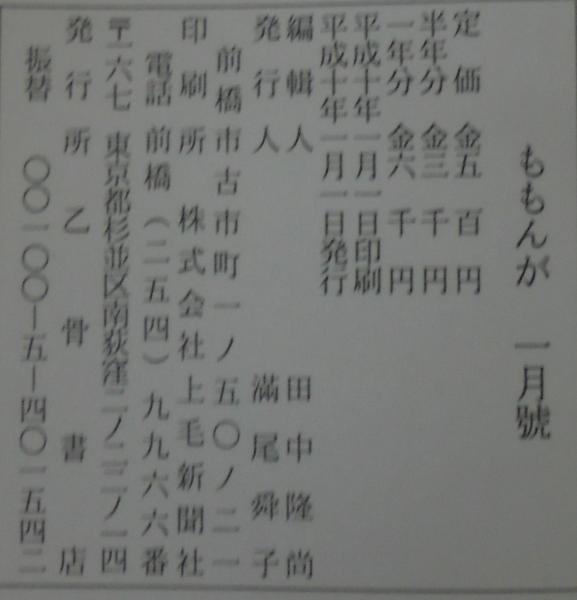 ももんが 一月號
定価 金五百円
半年分 金三千円
一年分 金六千円
平成十年一月一日印刷
平成十年一月一日発行
編輯人 田中隆尚
発行人 滿尾舜子
前橋市古市町一ノ五〇ノ二一
印刷所 株式会社上毛新聞社
電話 前橋(二五四)九九六六番
〒一六七 東京都杉並区南荻窪二ノ二三ノ一四
発行所 乙骨書店
振替 〇〇一〇〇―五―四〇一五四二